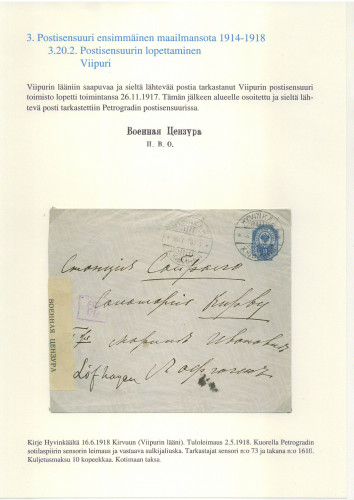 3. Postisensuuri ensimmäinen maailmansota 1914-1918
3.20.2. Postisensuurin lopettaminen
Viipuri
Viipurin lääniin saapuvaa ja sieltä lähtevää postia tarkastanut Viipurin postisensuuri
toimisto lopetti toimintansa 26.11.1917. Tämän jälkeen alueelle osoitettu ja sieltä läh-
tevä posti tarkastettiin Petrogradin postisensuurissa.
Военная Цензура
П. В. О.
Станция Сайрала
Санатория Кирву
ВОЕННАЯ ЦЕНЗУРА
Марии Ивановне
Löfhagen
Kirje Hyvinkäältä 16.6.1918 Kirvuun (Viipurin lääni). Tuloleimaus 2.5.1918. Kuorella Petrogradin
sotilaspiirin sensorin leimaus ja vastaava sulkijaliuska. Tarkastajat sensori n:o 73 ja takana n:o 1610.
Kuljetusmaksu 10 kopeekkaa. Kotimaan taksa.